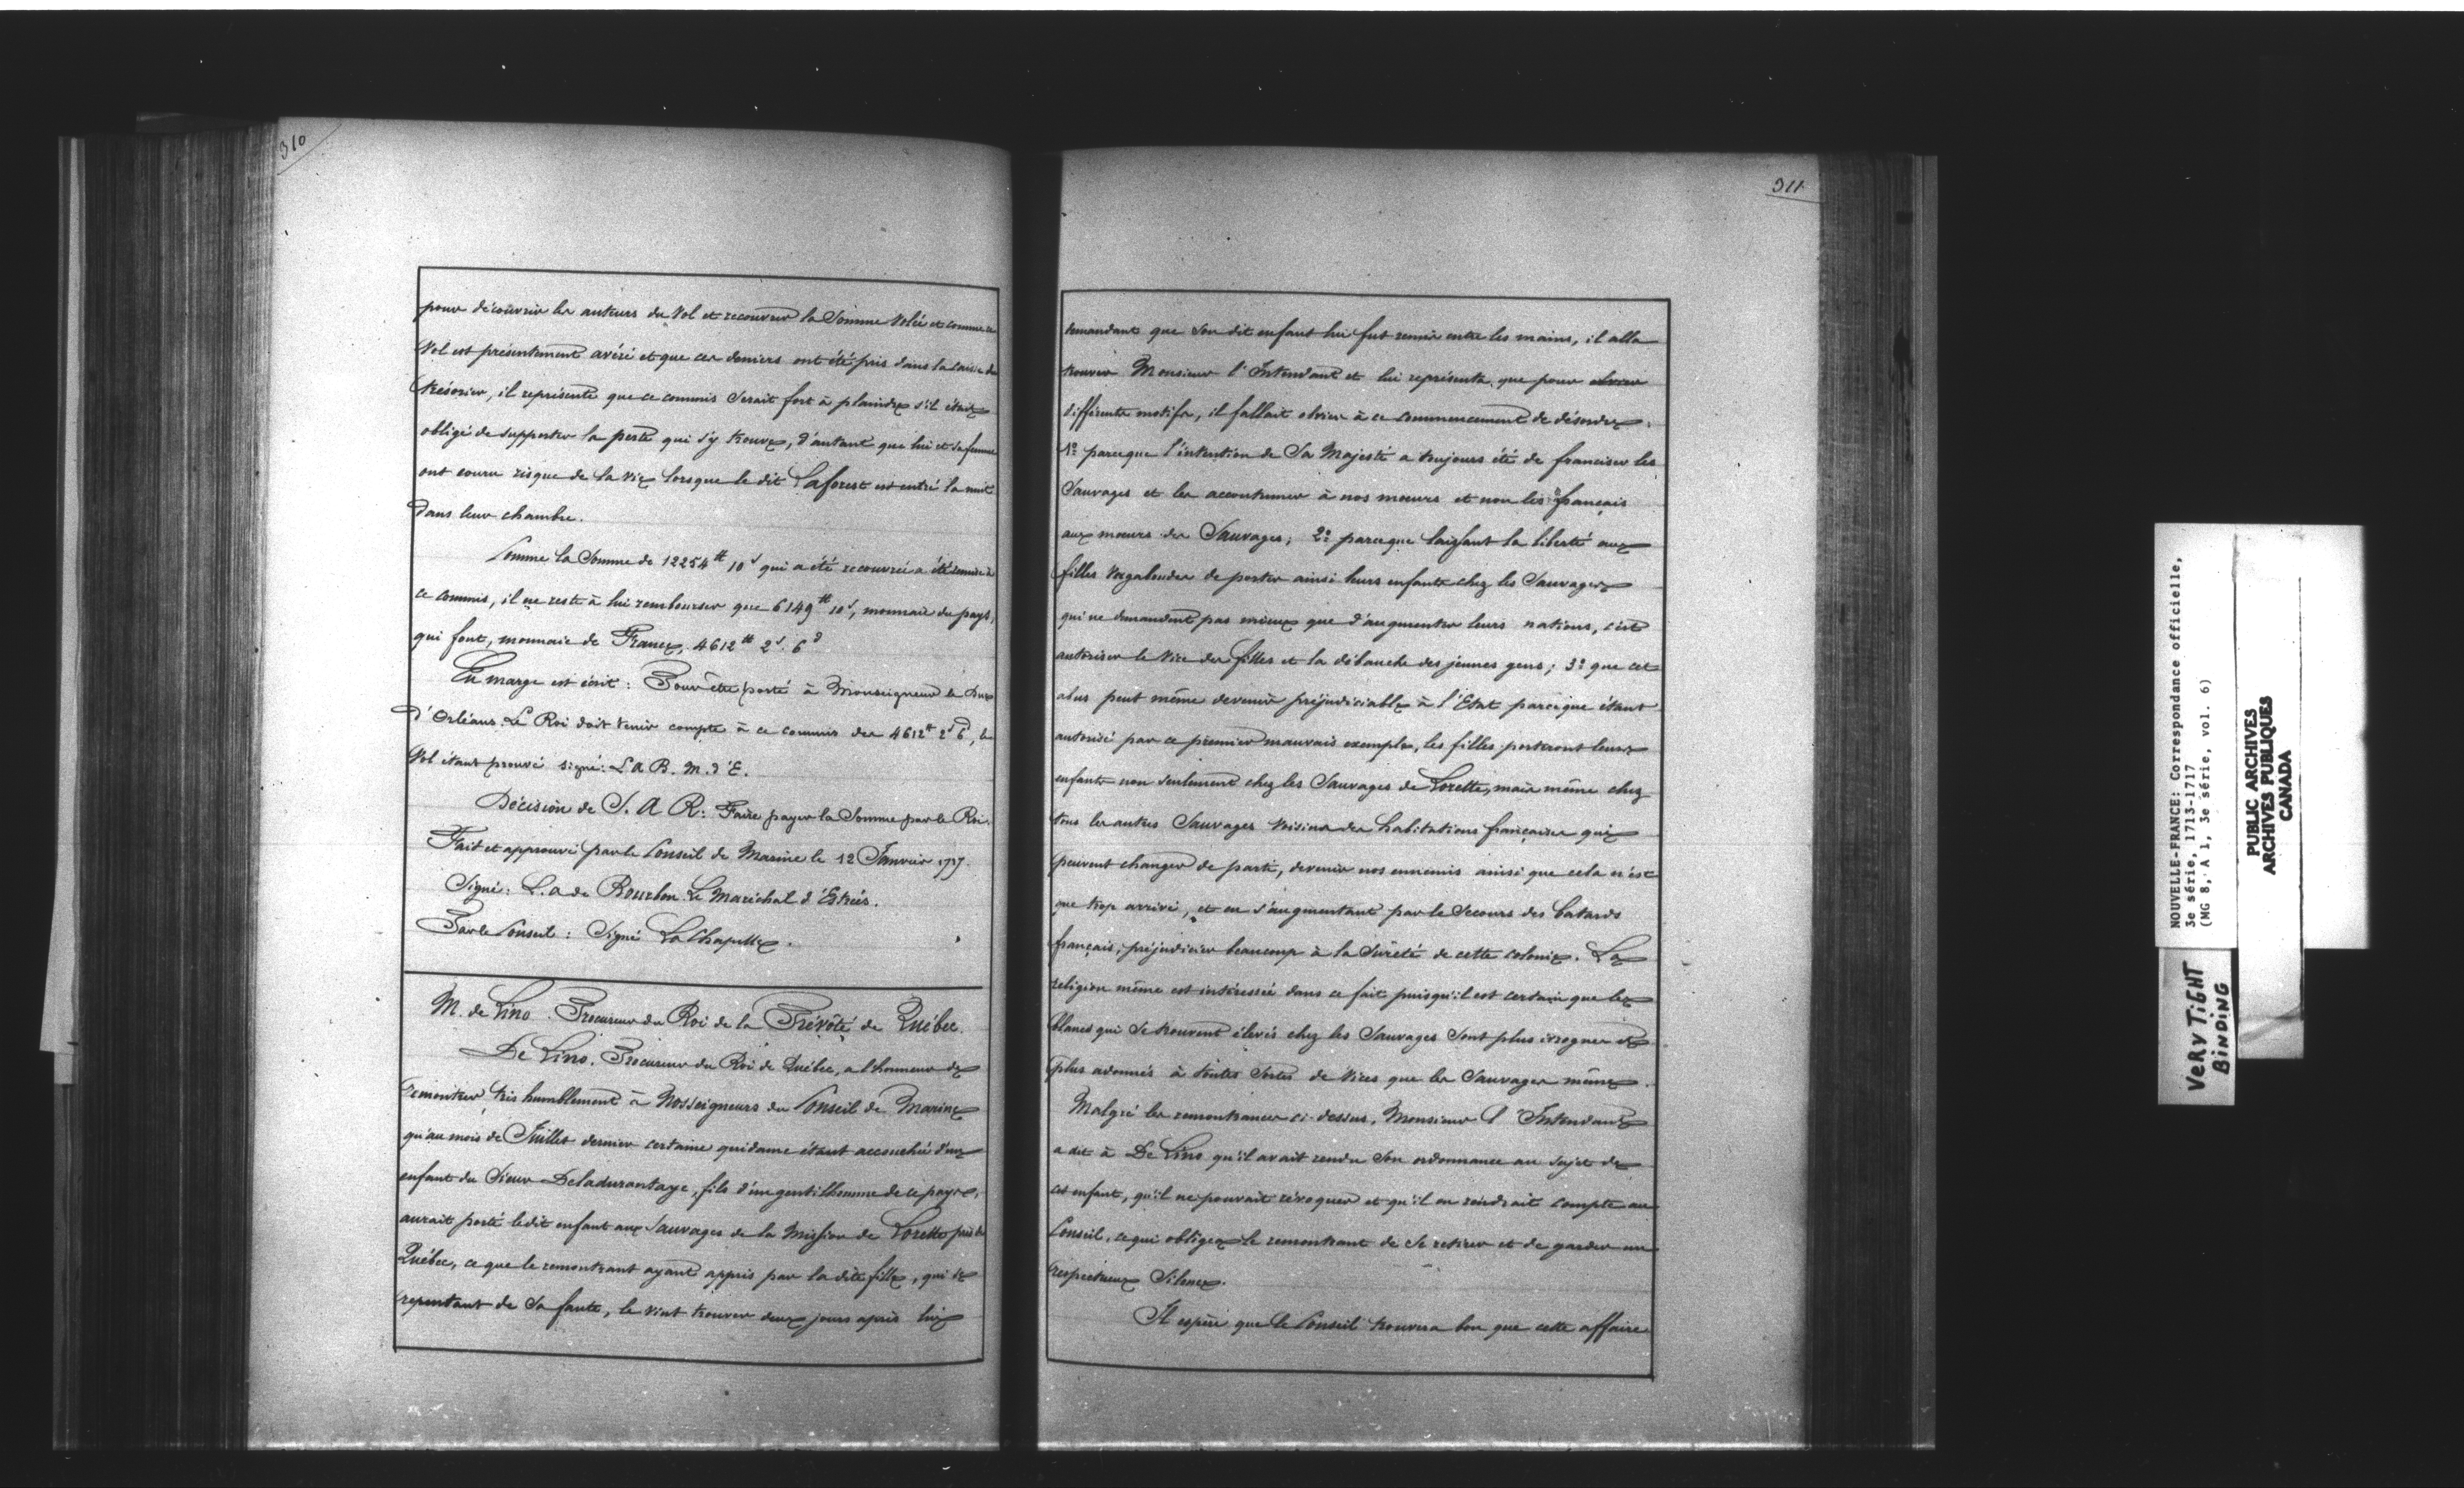 310
pour découvrir les auteurs du Vol et recouvrer la Somme Volée et comme ce
Vol est présentement avéré et que ces deniers ont été pris dans la caisse du
trésorier, il représente que ce commis Serait fort à plaindre s'il était
obligé de supporter la perte qui s'y trouve, d'autant que lui et sa femme
ont couru risque de la vie lorsque le dit Laforest est entré la nuit
dans leur chambre.
Comme la Somme de 12254tt 10s qui a été recouvrée a été remise à
ce commis, il ne reste à lui rembourser que 6149tt 10s, monnaie du pays,
qui font, monnaie de France, 4612tt 2s. 6d
En marge est écrit: Pour être porté à Monseigneur le Duc
d'Orléans. Le Roi doit tenir compte à ce commis des 4612tt 2s 6d, le
Vol étant prouvé signé: L A B. M. d'E.
Décision de S. A R: Faire payer la Somme par le Roi.
Fait et approuvé par le Conseil de Marine le 12 Janvier 1717.
Signé: L. a de Bourbon. Le Maréchal d'Estrées.
Par le Conseil: Signé LaChapelle.
M. de Lino. Procureur du Roi de la Prévôté de Québec.
De Lino. Procureur du Roi de Québec, a l'honneur de
remontrer très humblement à Nosseigneurs du Conseil de Marine
qu'au mois de Juillet dernier certaine quidame étant accouchée d'un
enfant du Sieur Deladurantaye, fils d'un gentilhomme de ce pays,
aurait porté le dit enfant aux Sauvages de la Mission de Lorette près de
Québec, ce que le remontrant ayant appris par la dite fille, qui se
repentant de Sa faute, le vint trouver deux jours après lui
311
demandant que Son dit enfant lui fut remis entre les mains, il alla
trouver Monsieur l'Intendant et lui représenta que pour
différents motifs, il fallait obvier à ce commencement de désordre:
1o parceque l'intention de Sa Majesté a toujours été de franciser les
Sauvages et les accoutumer à nos moeurs et non les français
aux moeurs des Sauvages; 2o parceque laissant la liberté aux
filles vagabondes de porter ainsi leurs enfants chez les Sauvages
qui ne demandent pas mieux que d'augmenter leurs nations, c'est
autoriser le vice des filles et la débauche des jeunes gens; 3o que cet
abus peut même devenir préjudiciable à l'Etat parceque étant
autorisé par ce premier mauvais exemple, les filles porteront leurs
enfants non seulement chez les Sauvages de Lorette, mais même chez
tous les autres Sauvages voisins des habitations françaises qui
peuvent changer de parti, devenir nos ennemis ainsi que cela n'est
que trop arrivé, et en s'augmentant par le Secours des batards
français, préjudicier beaucoup à la Sûreté de cette colonie. La
religion même est intéressée dans ce fait puisqu'il est certain que les
blancs qui Se trouvent élevés chez les Sauvages Sont plus ivrognes et
plus adonnés à toutes Sortes de Vices que les Sauvages même.
Malgré les remontrances ci-dessus, Monsieur l'Intendant
a dit à De Lino qu'il avait rendu Son ordonnance au sujet de
cet enfant, qu'il ne pouvait révoquer et qu'il en rendrait compte au
Conseil, ce qui obligea le remontrant de Se retirer et de garder un
respectueux Silence.
Il espère que le Conseil trouvera bon que cette affaire
NOUVELLE-FRANCE: Correspondance officielle,
3e série, 1713-1717
(MG 8, A 1, 3e série, vol. 6)
PUBLIC ARCHIVES
ARCHIVES PUBLIQUES
CANADA
VERY TIGHT
BINDING